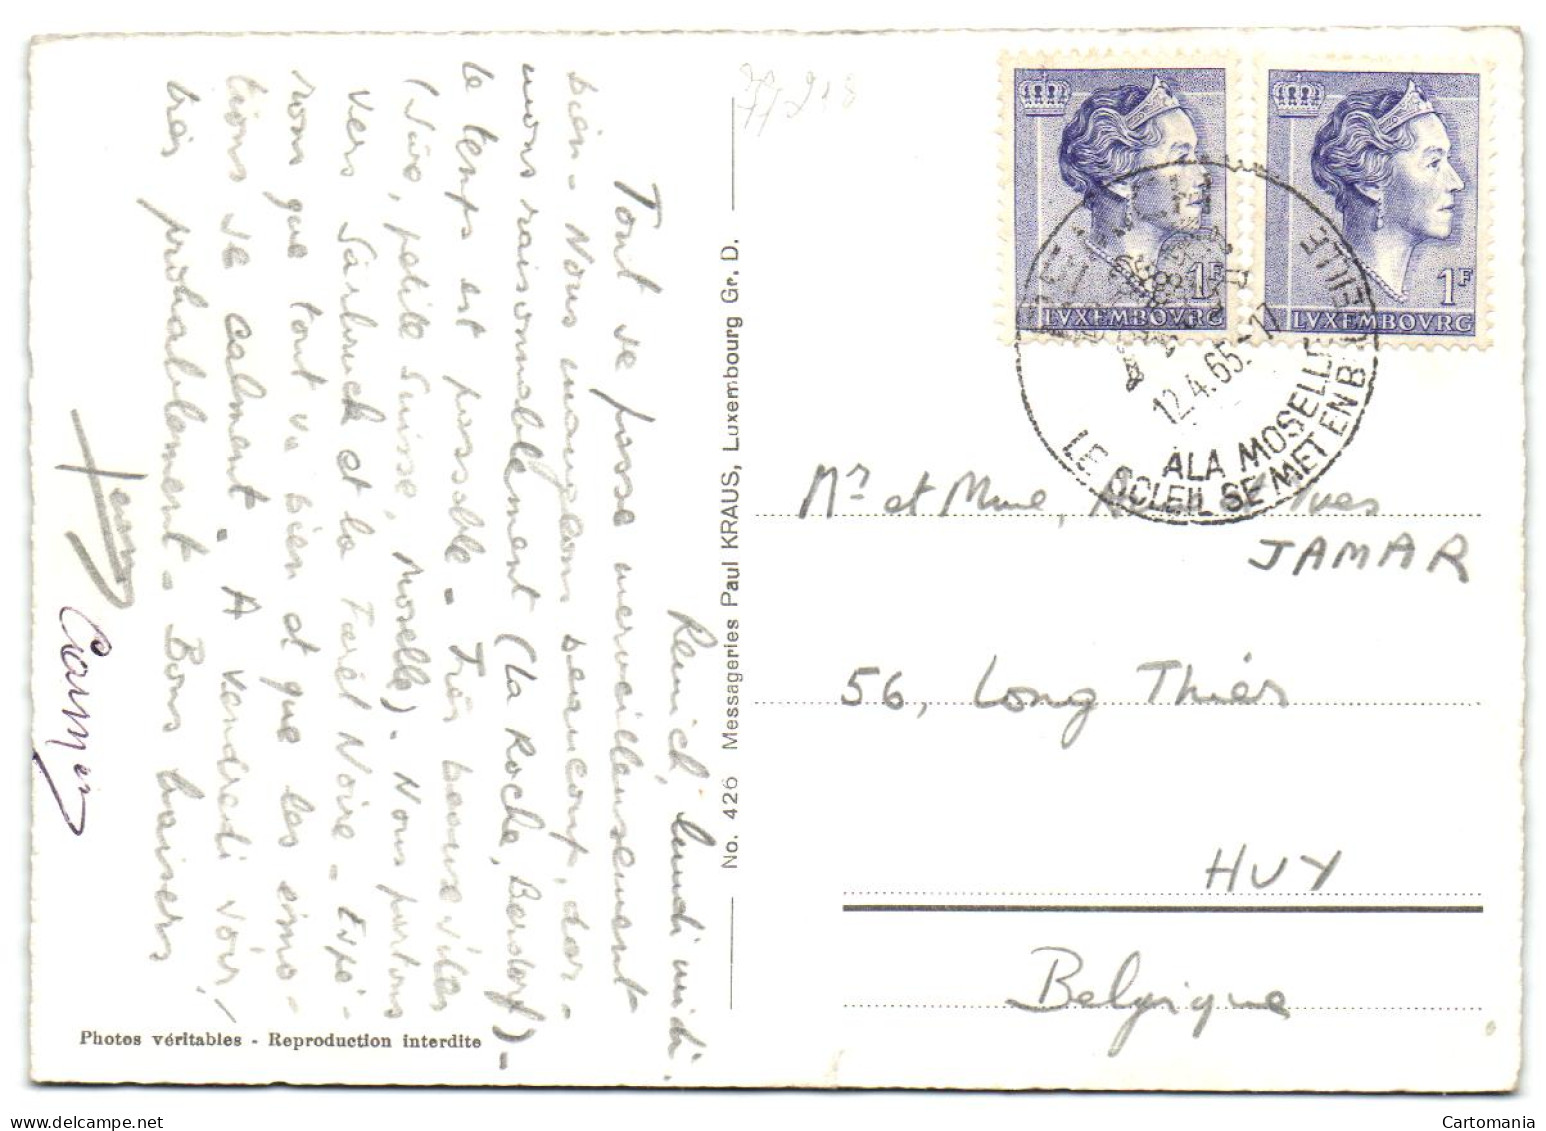 Remich, lundi midi.
Tout se passe merveilleusement
bien - Nous mangeons beaucoup, dor-
mons raisonnablement (La Roche, Berdorf) -
le temps est passable - Très beaux sites
(Sûre, petite Suisse, Moselle). Nous partons
vers Sarbruck et la Forêt Noire - Espé-
rons que tout va bien et que les émo-
tions se calment - A vendredi voir!
très probablement - Bons baisers
No. 426 Messageries Paul KRAUS, Luxembourg Gr. D.
Photos véritables - Reproduction interdite
1F
LVXEMBOVRG
1F
LVXEMBOVRG
12.4.65
A LA MOSELLE
LE SOLEIL SE MET EN BOUTEILLE
Mr et Mme, Yves
JAMAR
56, Long Thier
HUY
Belgique
Cartomania